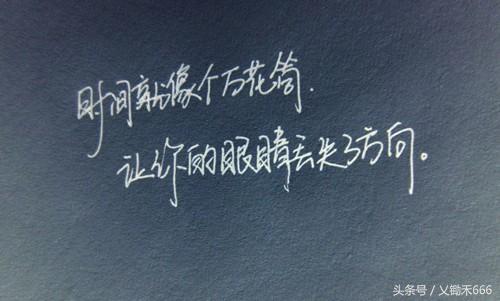 时间就像个万花筒.
让你的眼睛丢失了方向。
头条号/乂锄禾666